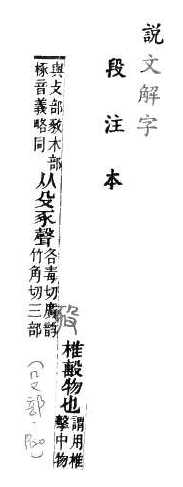 說文解字
段注本
𣪌 椎毄物也謂用椎
擊中物
與攴部㪣木部
椓音義略同从殳豖聲各毒切廣韵
竹角切三部
(殳部